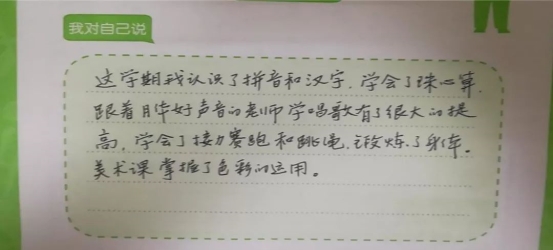 我对自己说
这学期我认识了拼音和汉字,学会了珠心算,
跟着月华好声音的老师学唱歌有了很大的提
高,学会了接力赛跑和跳绳,锻炼了身体。
美术课掌握了色彩的运用。